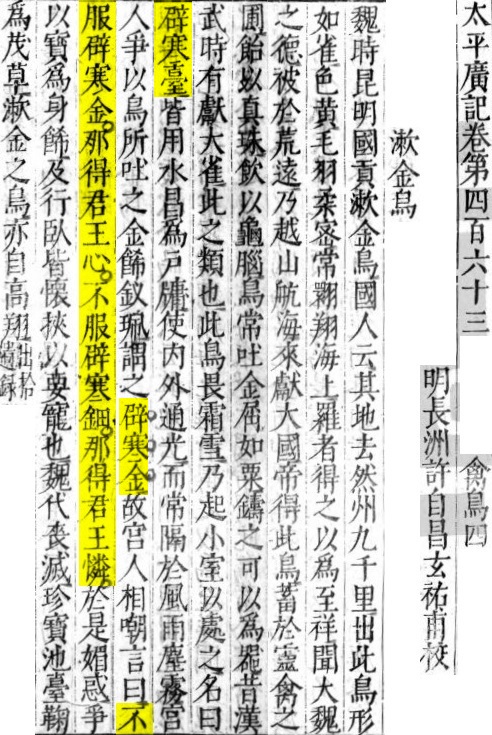 太平廣記卷第四百六十三　禽鳥四
明長洲許自昌玄祐甫校
漱金鳥
魏時昆明國貢漱金鳥國人云其地去然州九千里出此鳥形
如雀色黄毛羽柔密常翺翔海上羅者得之以為至祥聞大魏
之德被於荒遠乃越山航海來獻大國帝得此鳥蓄於靈禽之
圃飴以真珠飲以龜腦鳥常吐金屑如粟鑄之可以為噐昔漢
武時有獻大雀此之類也此鳥畏霜雪乃起小室以處之名曰
辟寒臺皆用水昌為戶牗使内外通光而常隔於風雨塵霧宫
人爭以鳥所吐之金餙釵珮謂之辟寒金故宫人相嘲言曰不
服辟寒金。那得君王心。不服辟寒鈿。那得君王憐。於是媚惑爭
以寶為身餙及行臥皆懷挾以要寵也魏代喪滅珍寶池臺鞠
為茂草漱金之鳥亦自高翔出拾遺録